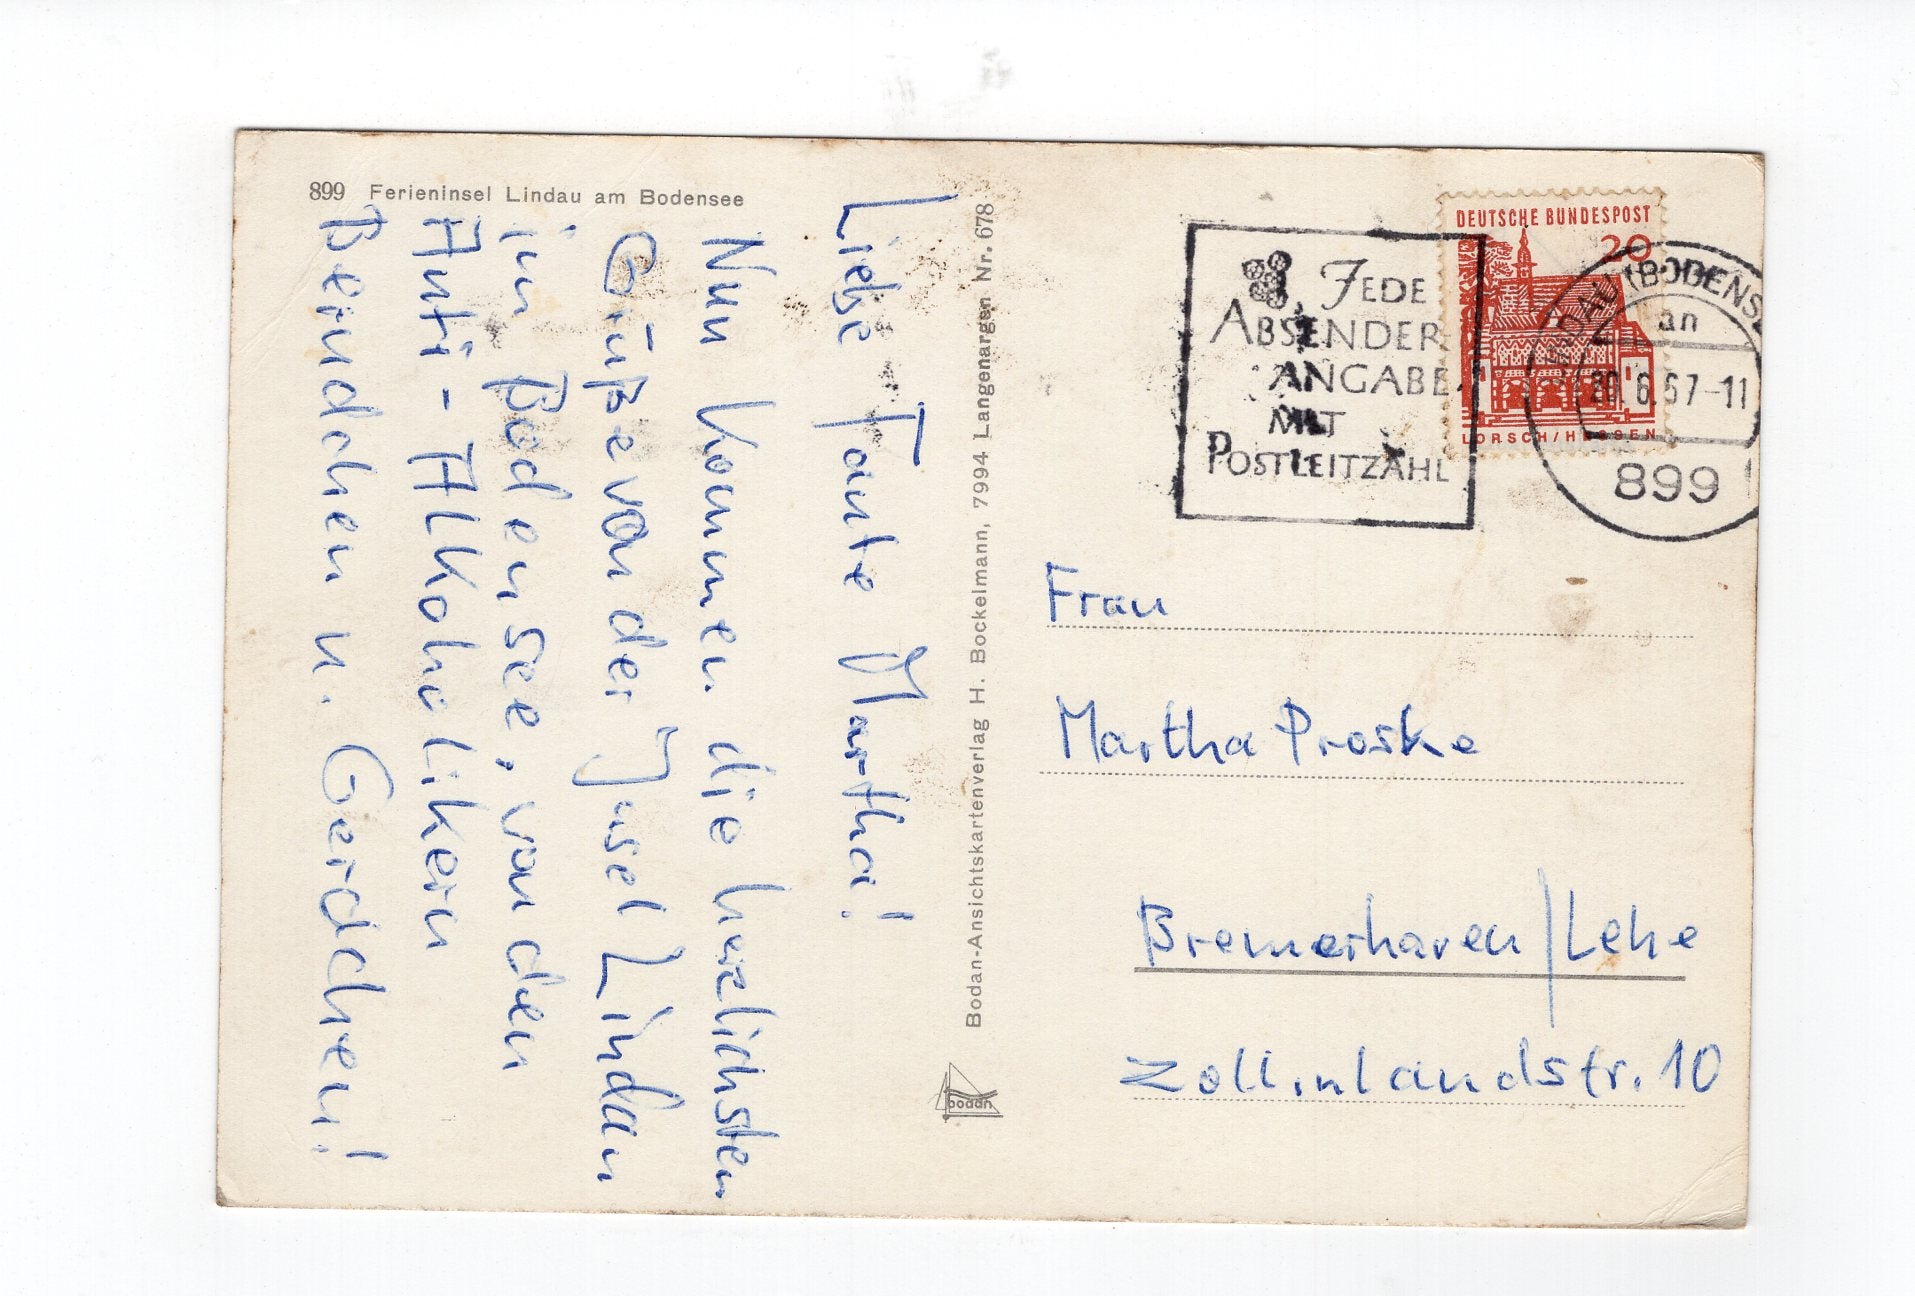 899 Ferieninsel Lindau am Bodensee
Liebe Tante Martha!
Nun kommen die herzlichsten
Grüße von der Insel Lindau
im Bodensee, von den
Anti-Alkoholikern
Berndchen u. Gerdchen!
Bodan-Ansichtskartenverlag H. Bockelmann, 7994 Langenargen Nr. 678
bodan
JEDE
ABSENDER
ANGABE
MIT
POSTLEITZAHL
DEUTSCHE BUNDESPOST
20
LORSCH/HESSEN
LINDAU (BODENSE
an
20.6.67-11
899
Frau
Martha Proske
Bremerhaven/Lehe
Zollinlandstr. 10